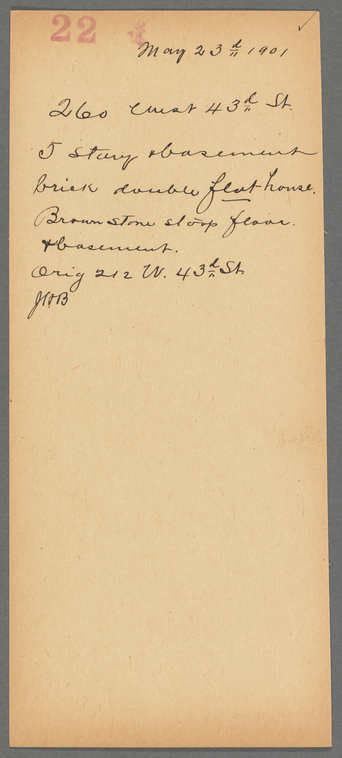 22
May 23d 1901
260 West 43d St.
5 story & basement
brick double flat house.
Brown stone stoop floor.
& basement.
Orig 212 W. 43d St